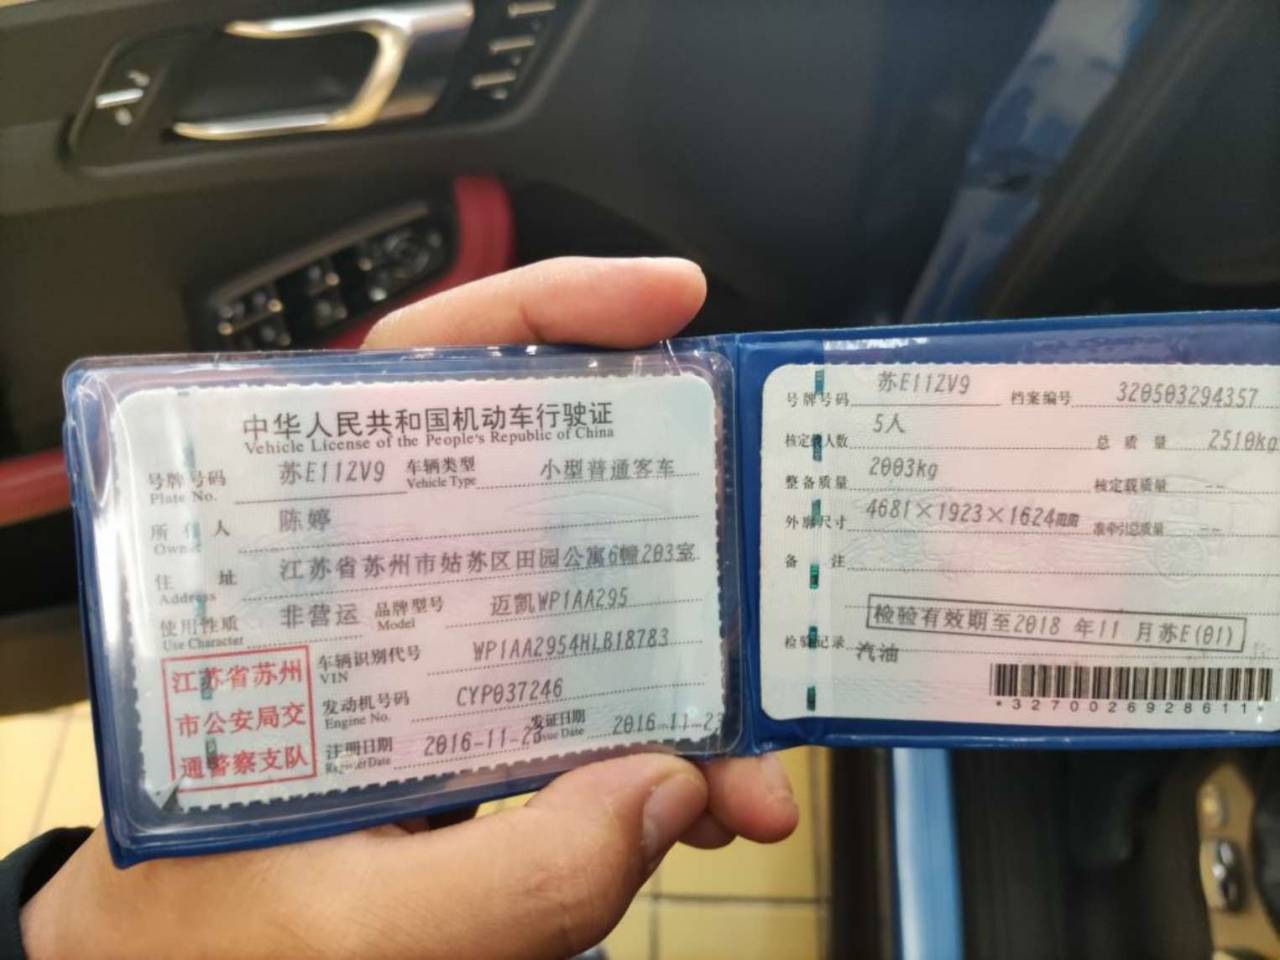 中华人民共和国机动车行驶证
Vehicle License of the People's Republic of China
号牌号码 苏E11ZV9 车辆类型 小型普通客车
Plate No. Vehicle Type
所有人 陈婷
Owner
住址 江苏省苏州市姑苏区田园公寓6幢203室
Address
使用性质 非营运 品牌型号 迈凯WP1AA295
Use Character Model
江苏省苏州
市公安局交
通警察支队
车辆识别代号 WP1AA2954HLB18783
VIN
发动机号码 CYP037246
Engine No.
注册日期 2016-11-23 发证日期 2016-11-23
Register Date Issue Date
号牌号码 苏E11ZV9 档案编号 320503294357
核定载人数 5人 总质量 2510kg
整备质量 2003kg 核定载质量 --
外廓尺寸 4681×1923×1624mm 准牵引总质量 --
备注
检验有效期至2018年11月苏E(01)
检验记录 汽油
*3270026928611*